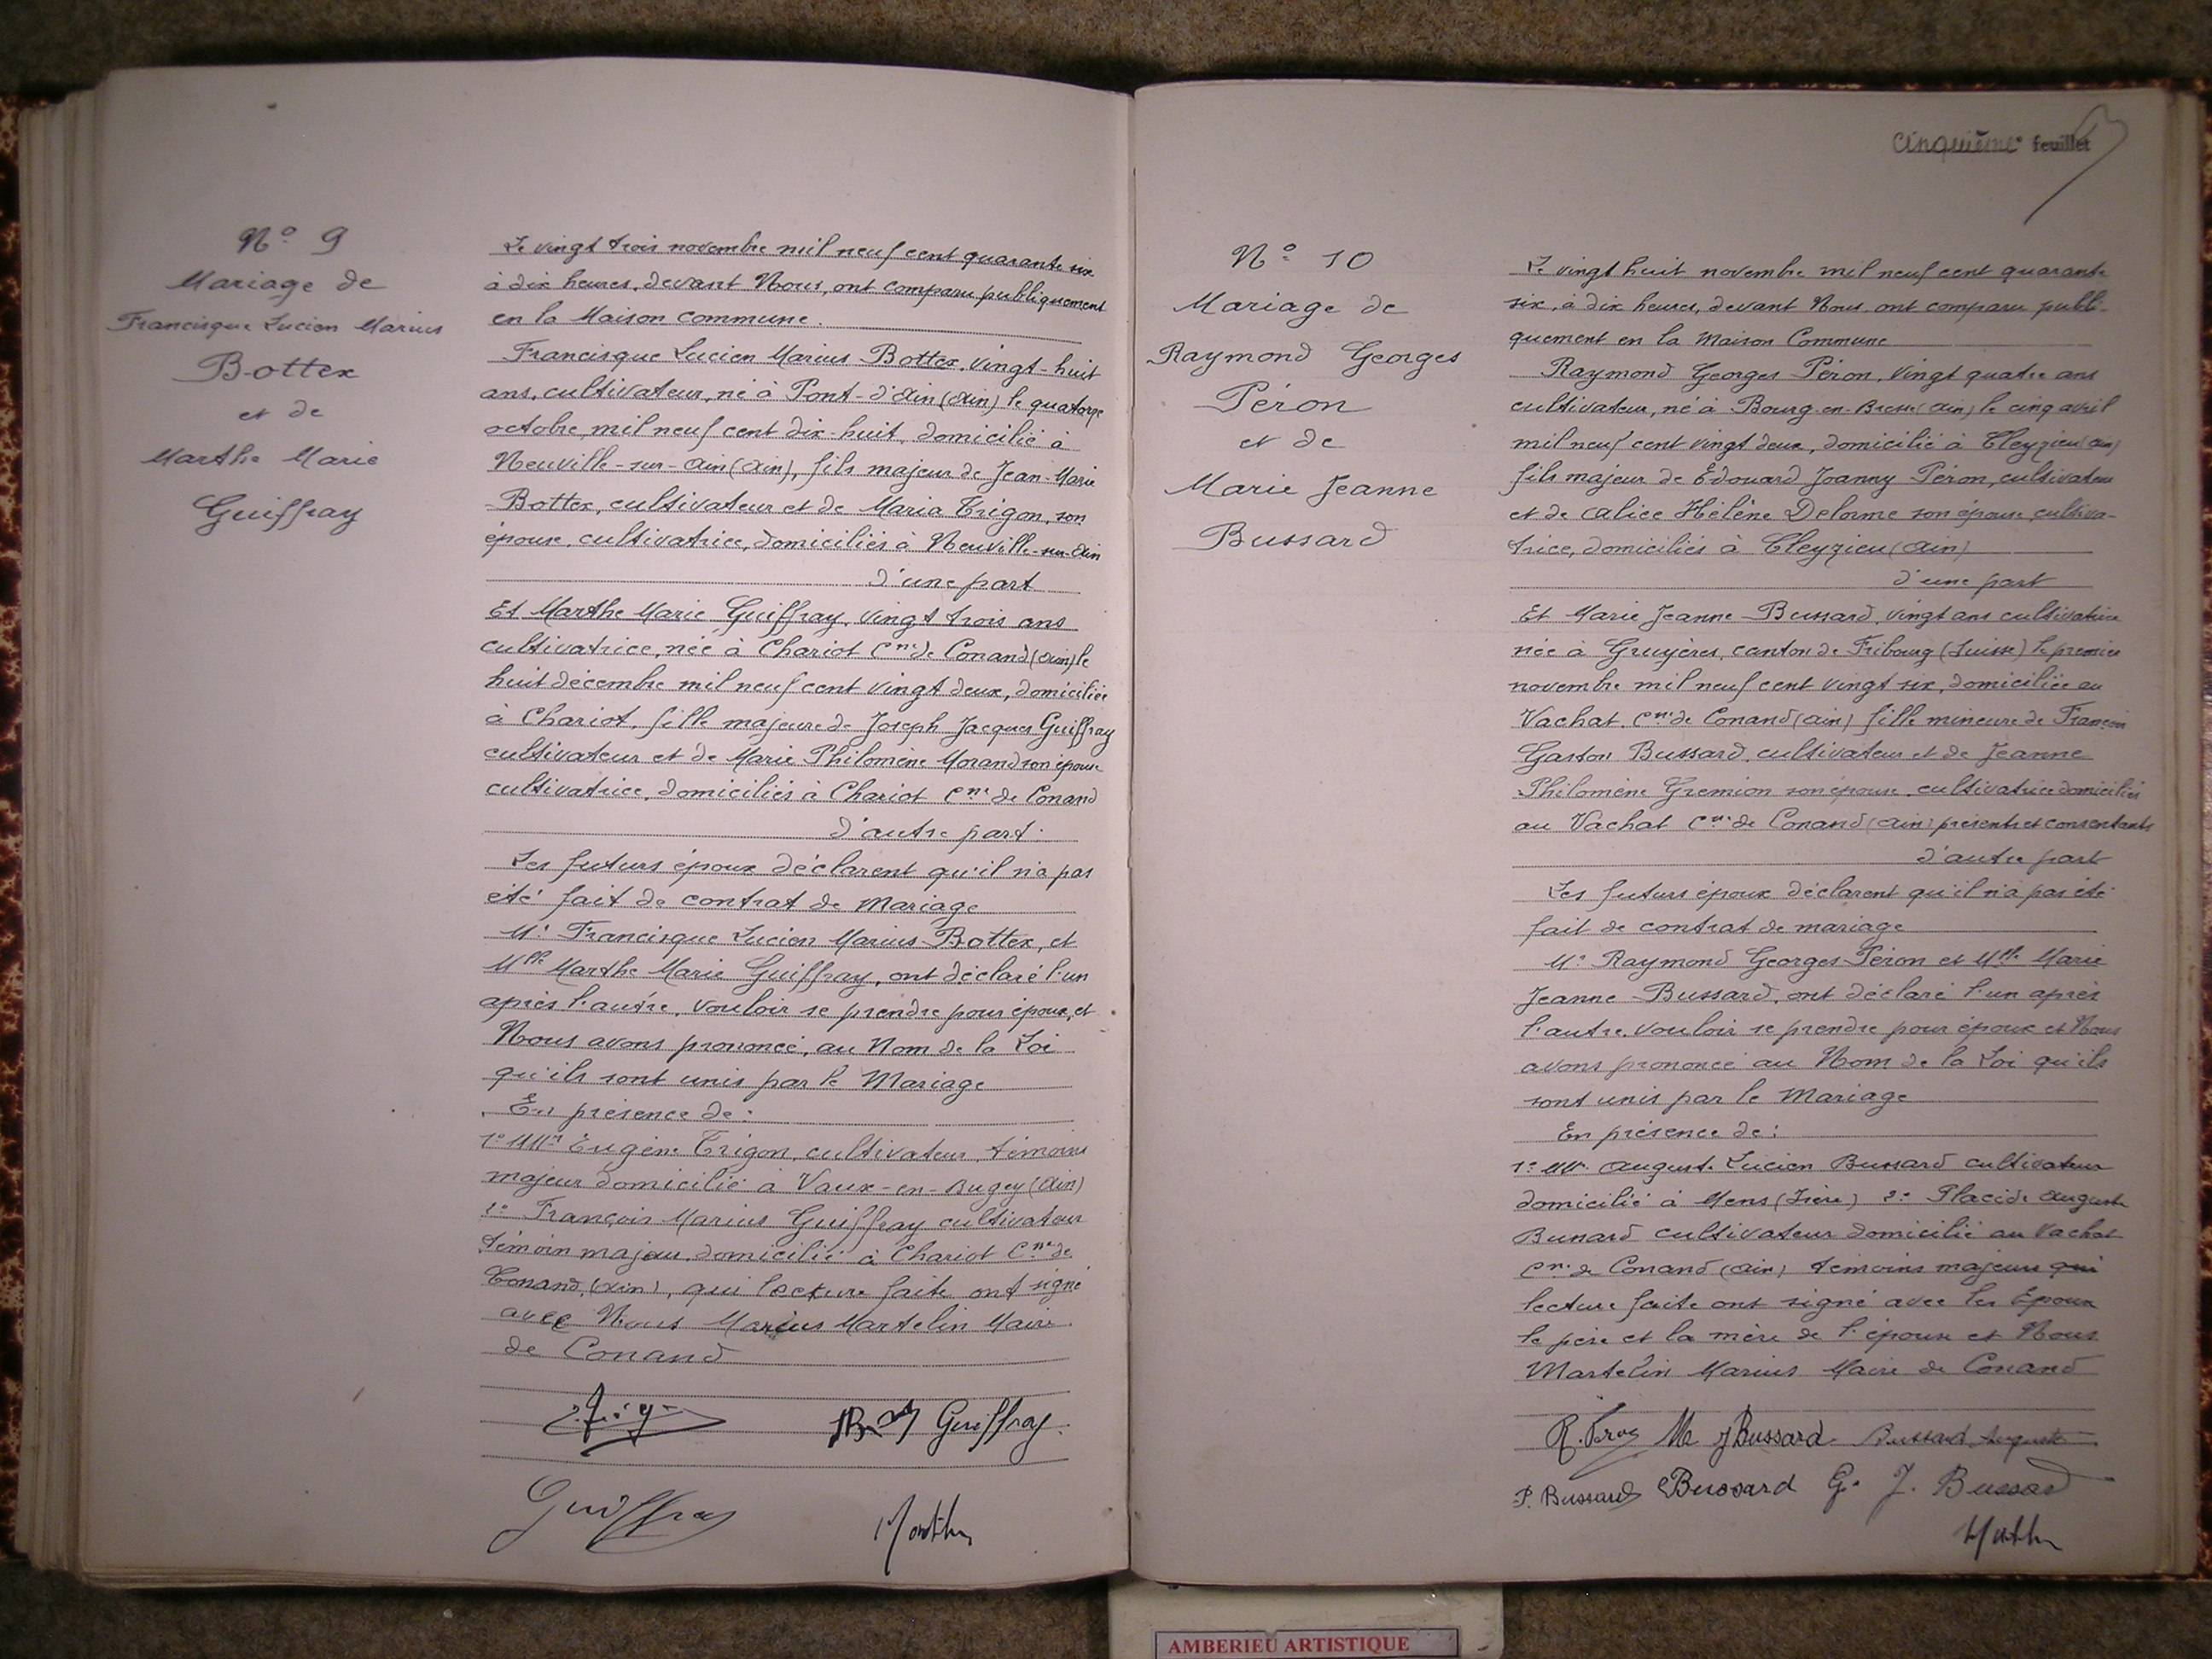 N° 9
Mariage de
Francisque Lucien Marius
Bottex
et de
Marthe Marie
Guiffray
Le vingt trois novembre mil neuf cent quarante six
à dix heures, devant Nous, ont comparu publiquement
en la Maison commune.
Francisque Lucien Marius Bottex, vingt-huit
ans, cultivateur, né à Pont-d'Ain (Ain) le quatorze
octobre mil neuf cent dix-huit, domicilié à
Neuville-sur-Ain (Ain), fils majeur de Jean-Marie
Bottex, cultivateur et de Maria Trigon, son
épouse, cultivatrice, domiciliés à Neuville-sur-Ain
d'une part
Et Marthe Marie Guiffray, vingt trois ans
cultivatrice, née à Chariot Cne de Conand (Ain) le
huit décembre mil neuf cent vingt deux, domiciliée
à Chariot, fille majeure de Joseph Jacques Guiffray
cultivateur et de Marie Philomène Morand son épouse
cultivatrice, domiciliés à Chariot Cne de Conand
d'autre part.
Les futurs époux déclarent qu'il n'a pas
été fait de contrat de Mariage
Mr Francisque Lucien Marius Bottex, et
Mlle Marthe Marie Guiffray, ont déclaré l'un
après l'autre, vouloir se prendre pour époux, et
Nous avons prononcé, au Nom de la Loi
qu'ils sont unis par le Mariage
En présence de :
1° MMrs Eugène Trigon, cultivateur, témoins
majeur domicilié à Vaux-en-Bugey (Ain)
2° François Marius Guiffray cultivateur
témoin majeur, domicilié à Chariot Cne de
Conand, (Ain), qui lecture faite ont signé
avec Nous Marius Martelin Maire
de Conand
Guiffray
Guiffray
cinquième feuillet
N° 10
Mariage de
Raymond Georges
Péron
et de
Marie Jeanne
Bussard
Le vingt huit novembre mil neuf cent quarante
six, à dix heures, devant Nous, ont comparu publi-
quement en la Maison Commune
Raymond Georges Péron, vingt quatre ans
cultivateur, né à Bourg-en-Bresse (Ain) le cinq avril
mil neuf cent vingt deux, domicilié à Cleyzieu (Ain)
fils majeur de Édouard Joanny Péron, cultivateur
et de Alice Hélène Delorme son épouse, cultiva-
trice, domiciliés à Cleyzieu (Ain)
d'une part
Et Marie Jeanne Bussard, vingt ans cultivatrice
née à Gruyères, canton de Fribourg (Suisse) le premier
novembre mil neuf cent vingt six, domiciliée au
Vachat, Cne de Conand (Ain) fille mineure de François
Gaston Bussard, cultivateur et de Jeanne
Philomène Gremion son épouse, cultivatrice domiciliés
au Vachat Cne de Conand (Ain) présents et consentants
d'autre part
Les futurs époux déclarent qu'il n'a pas été
fait de contrat de mariage
Mr Raymond Georges Péron et Mlle Marie
Jeanne Bussard, ont déclaré l'un après
l'autre, vouloir se prendre pour époux et Nous
avons prononcé au Nom de la Loi qu'ils
sont unis par le Mariage
En présence de :
1° MM. Auguste Lucien Bussard cultivateur
domicilié à Mens (Isère) 2° Placide Auguste
Bussard cultivateur domicilié au Vachat
Cne de Conand (Ain) témoins majeurs qui
lecture faite ont signé avec les Epoux
le père et la mère de l'épouse et Nous
Martelin Marius Maire de Conand
M J Bussard Bussard Auguste
P. Bussard Bussard G. J. Bussard
AMBERIEU ARTISTIQUE